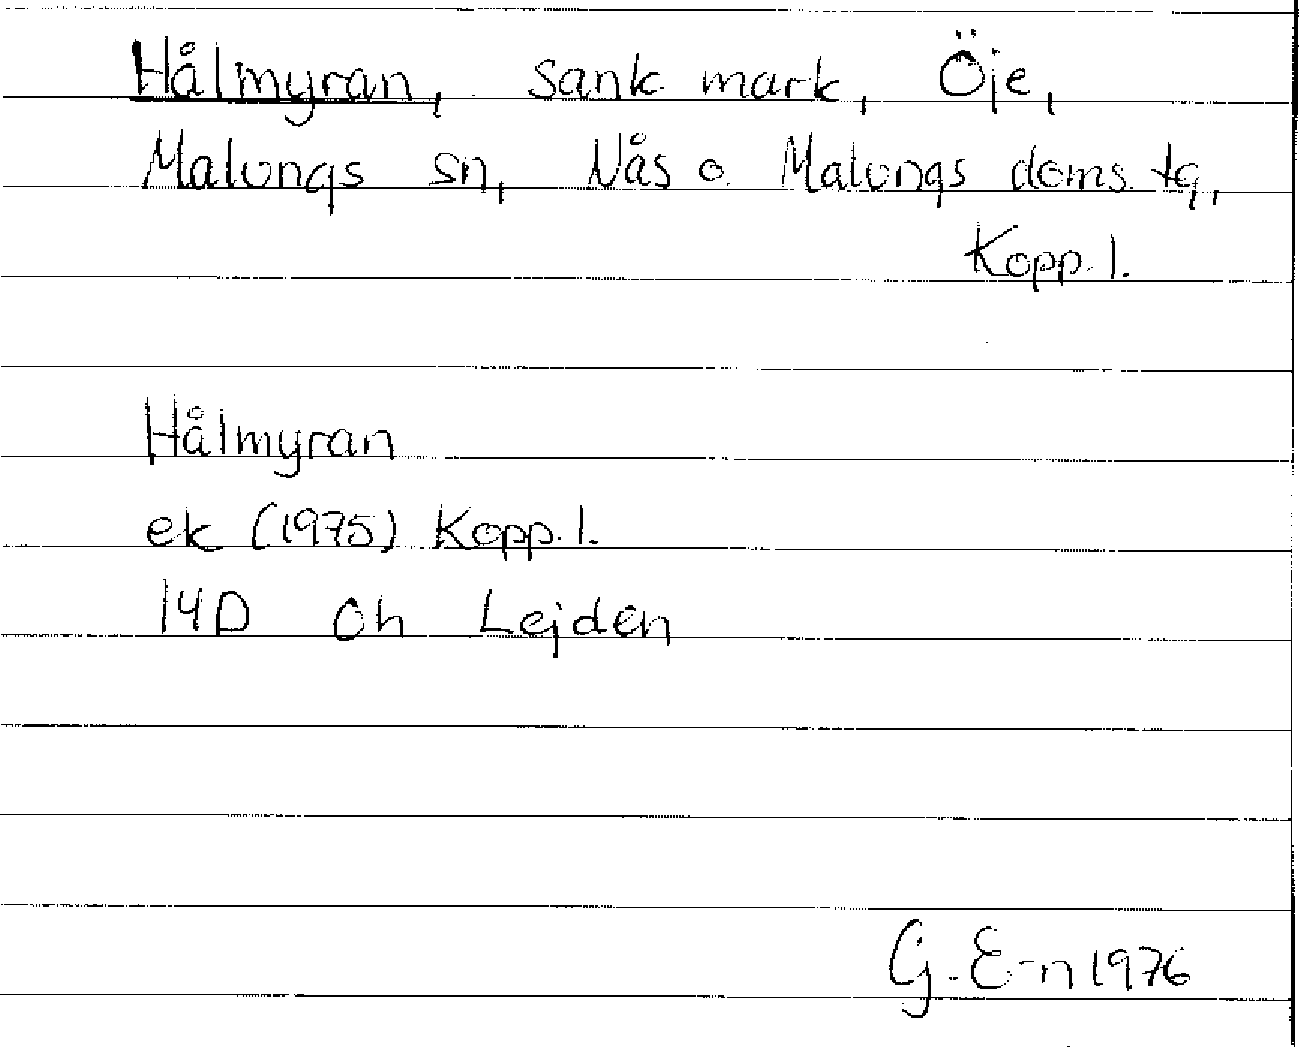 Hålmyran, sank mark, Öje,
Malungs sn, Nås o. Malungs doms. tg,
Kopp. l.
Hålmyran
ek (1975) Kopp. l.
14D Oh Lejden
G. E-n 1976